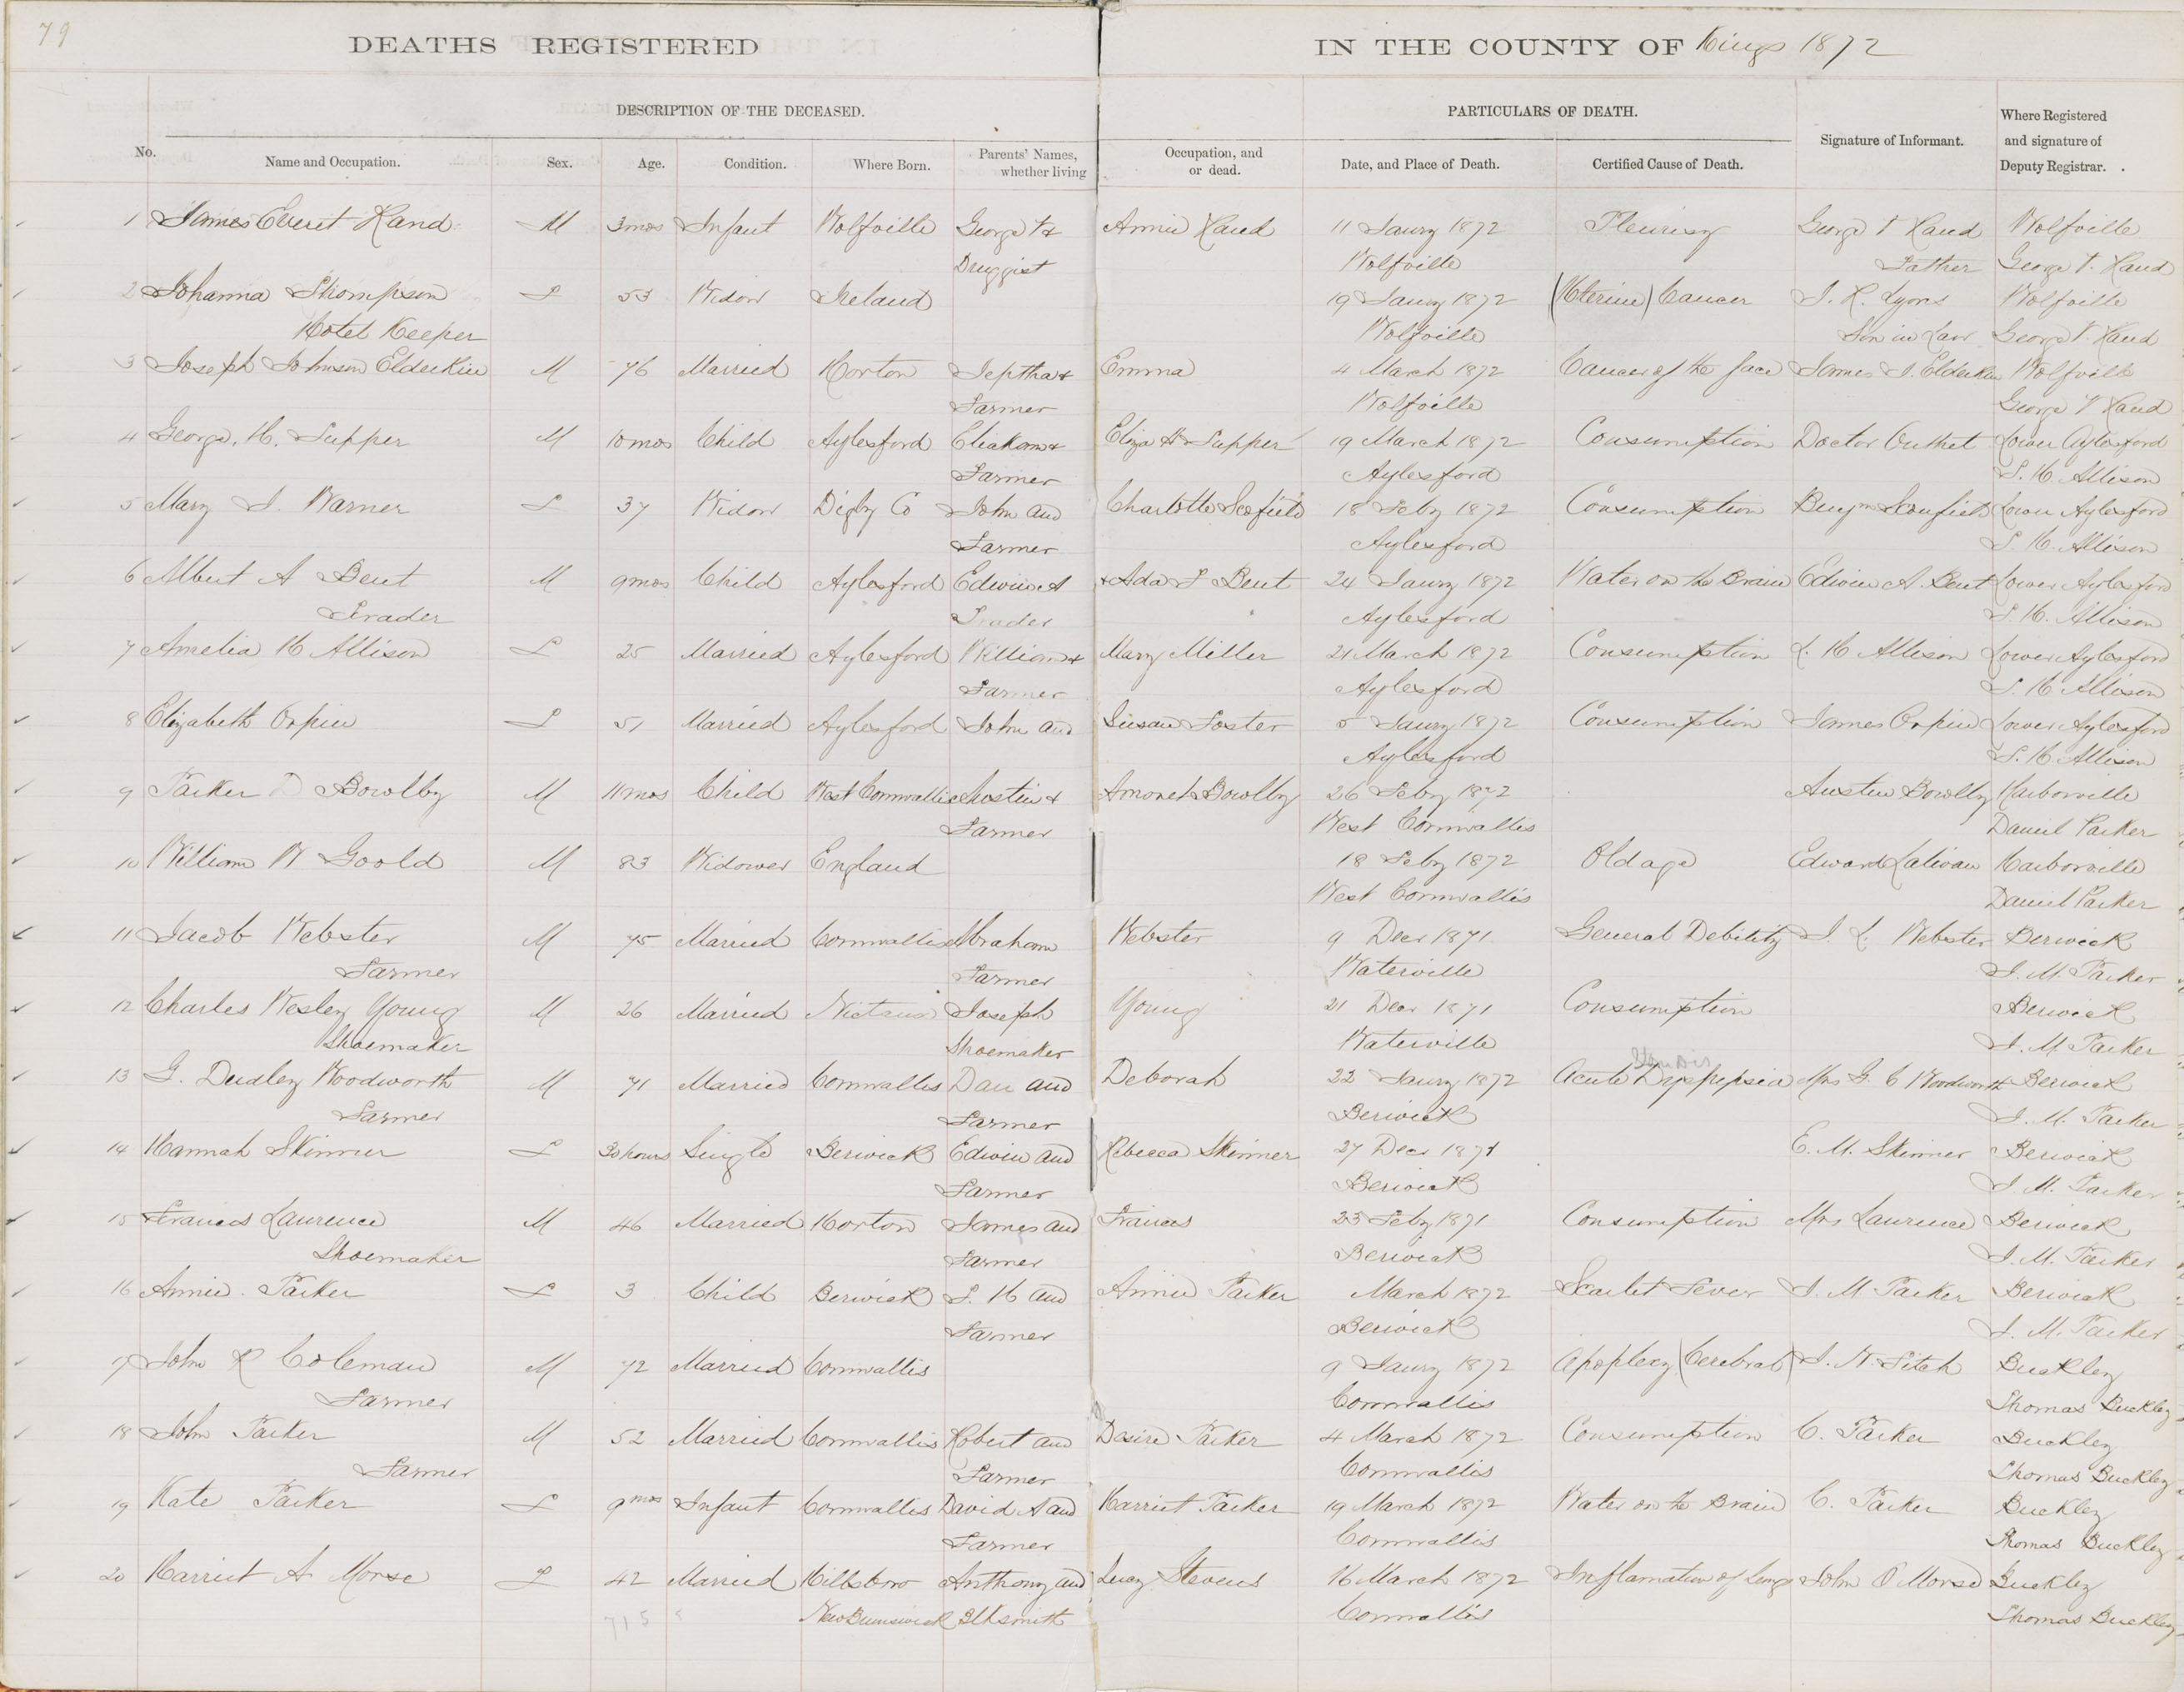 79
DEATHS REGISTERED IN THE COUNTY OF Kings 1872
DESCRIPTION OF THE DECEASED. PARTICULARS OF DEATH.
No. Name and Occupation. Sex. Age. Condition. Where Born. Parents' Names, whether living Occupation, and or dead. Date, and Place of Death. Certified Cause of Death. Signature of Informant. Where Registered and signature of Deputy Registrar.
1 James Everet Rand M 3 mos Infant Wolfville George V & Annie Rand 11 Jaury 1872 Pleurisy George V Rand Wolfville
Druggist Wolfville Father George V. Rand
2 Johanna Thompson F 53 Widow Ireland 19 Jaury 1872 (Uterine) Cancer J. R. Lyons Wolfville
Hotel Keeper Wolfville Son in Law George V. Rand
3 Joseph Johnson Elderkin M 76 Married Horton Jeptha & Emma 4 March 1872 Cancer of the face James S. Elderkin Wolfville
Farmer Wolfville George V Rand
4 George. H. Supper M 10 mos Child Aylesford Eliakom & Eliza A Supper 19 March 1872 Consumption Doctor Outhet Lower Aylesford
Farmer Aylesford L. H. Allison
5 Mary J. Warner F 37 Widow Digby Co John and Charlotte Scofield 18 Feby 1872 Consumption Benjm Scoufield Lower Aylesford
Farmer Aylesford L. H. Allison
6 Albert A Bent M 9 mos Child Aylesford Edwin A & Ada F Bent 24 Jaury 1872 Water on the Brain Edwin A. Bent Lower Aylesford
Trader Trader Aylesford L. H. Allison
7 Amelia H Allison F 25 Married Aylesford William & Mary Miller 21 March 1872 Consumption L. H Allison Lower Aylesford
Farmer Aylesford L. H Allison
8 Elizabeth Orpin F 51 Married Aylesford John and Susan Foster 5 Jaury 1872 Consumption James Orpin Lower Aylesford
Aylesford L. H. Allison
9 Parker D Bowlby M 11 mos Child West Cornwallis Austin & Bowlby 26 Feby 1872 Austin Bowlby Harborville
Farmer West Cornwallis Daniel Parker
10 William W Goold M 83 Widower England 18 Feby 1872 Old age Edward Harborville
West Cornwallis Daniel Parker
11 Jacob Webster M 75 Married Cornwallis Abraham Webster 9 Decr 1871 General Debility I. L. Webster Berwick
Farmer Farmer Waterville J. M. Parker
12 Charles Wesley Young M 26 Married Nictaux Joseph Young 21 Decr 1871 Consumption Berwick
Shoemaker Shoemaker Waterville J. M. Parker
13 G. Dudley Woodworth M 71 Married Cornwallis Dan and Deborah 22 Jaury 1872 Acute Dyspepsia Mrs G. C Woodworth Berwick
Farmer Farmer Berwick J. M. Parker
14 Hannah Skinner F 30 hours Single Berwick Edwin and Rebecca Skinner 27 Decr 1871 E. M. Skinner Berwick
Farmer Berwick J. M. Parker
15 Francis Laurence M 46 Married Horton James and Frances 23 Feby 1871 Consumption Mrs Laurence Berwick
Shoemaker Farmer Berwick J. M. Parker
16 Annie. Parker F 3 Child Berwick S. H and Annie Parker March 1872 Scarlet Fever J. M Parker Berwick
Farmer Berwick J. M. Parker
17 John R Coleman M 72 Married Cornwallis 9 Jaury 1872 Apoplexy (Cerebral) J. N. Fitch Buckley
Farmer Cornwallis Thomas Buckley
18 John Parker M 52 Married Cornwallis Robert and Desire Parker 4 March 1872 Consumption C. Parker Buckley
Farmer Farmer Cornwallis Thomas Buckley
19 Kate Parker F 9 mos Infant Cornwallis David A and Harriet Parker 19 March 1872 Water on the Brain C. Parker Buckley
Farmer Cornwallis Thomas Buckley
20 Harriet A Morse F 42 Married Hillsboro Anthony and Lucy Stevens 16 March 1872 Inflamation of Lungs John O Morse Buckley
715 New Bunswick Blksmith Cornwallis Thomas Buckley